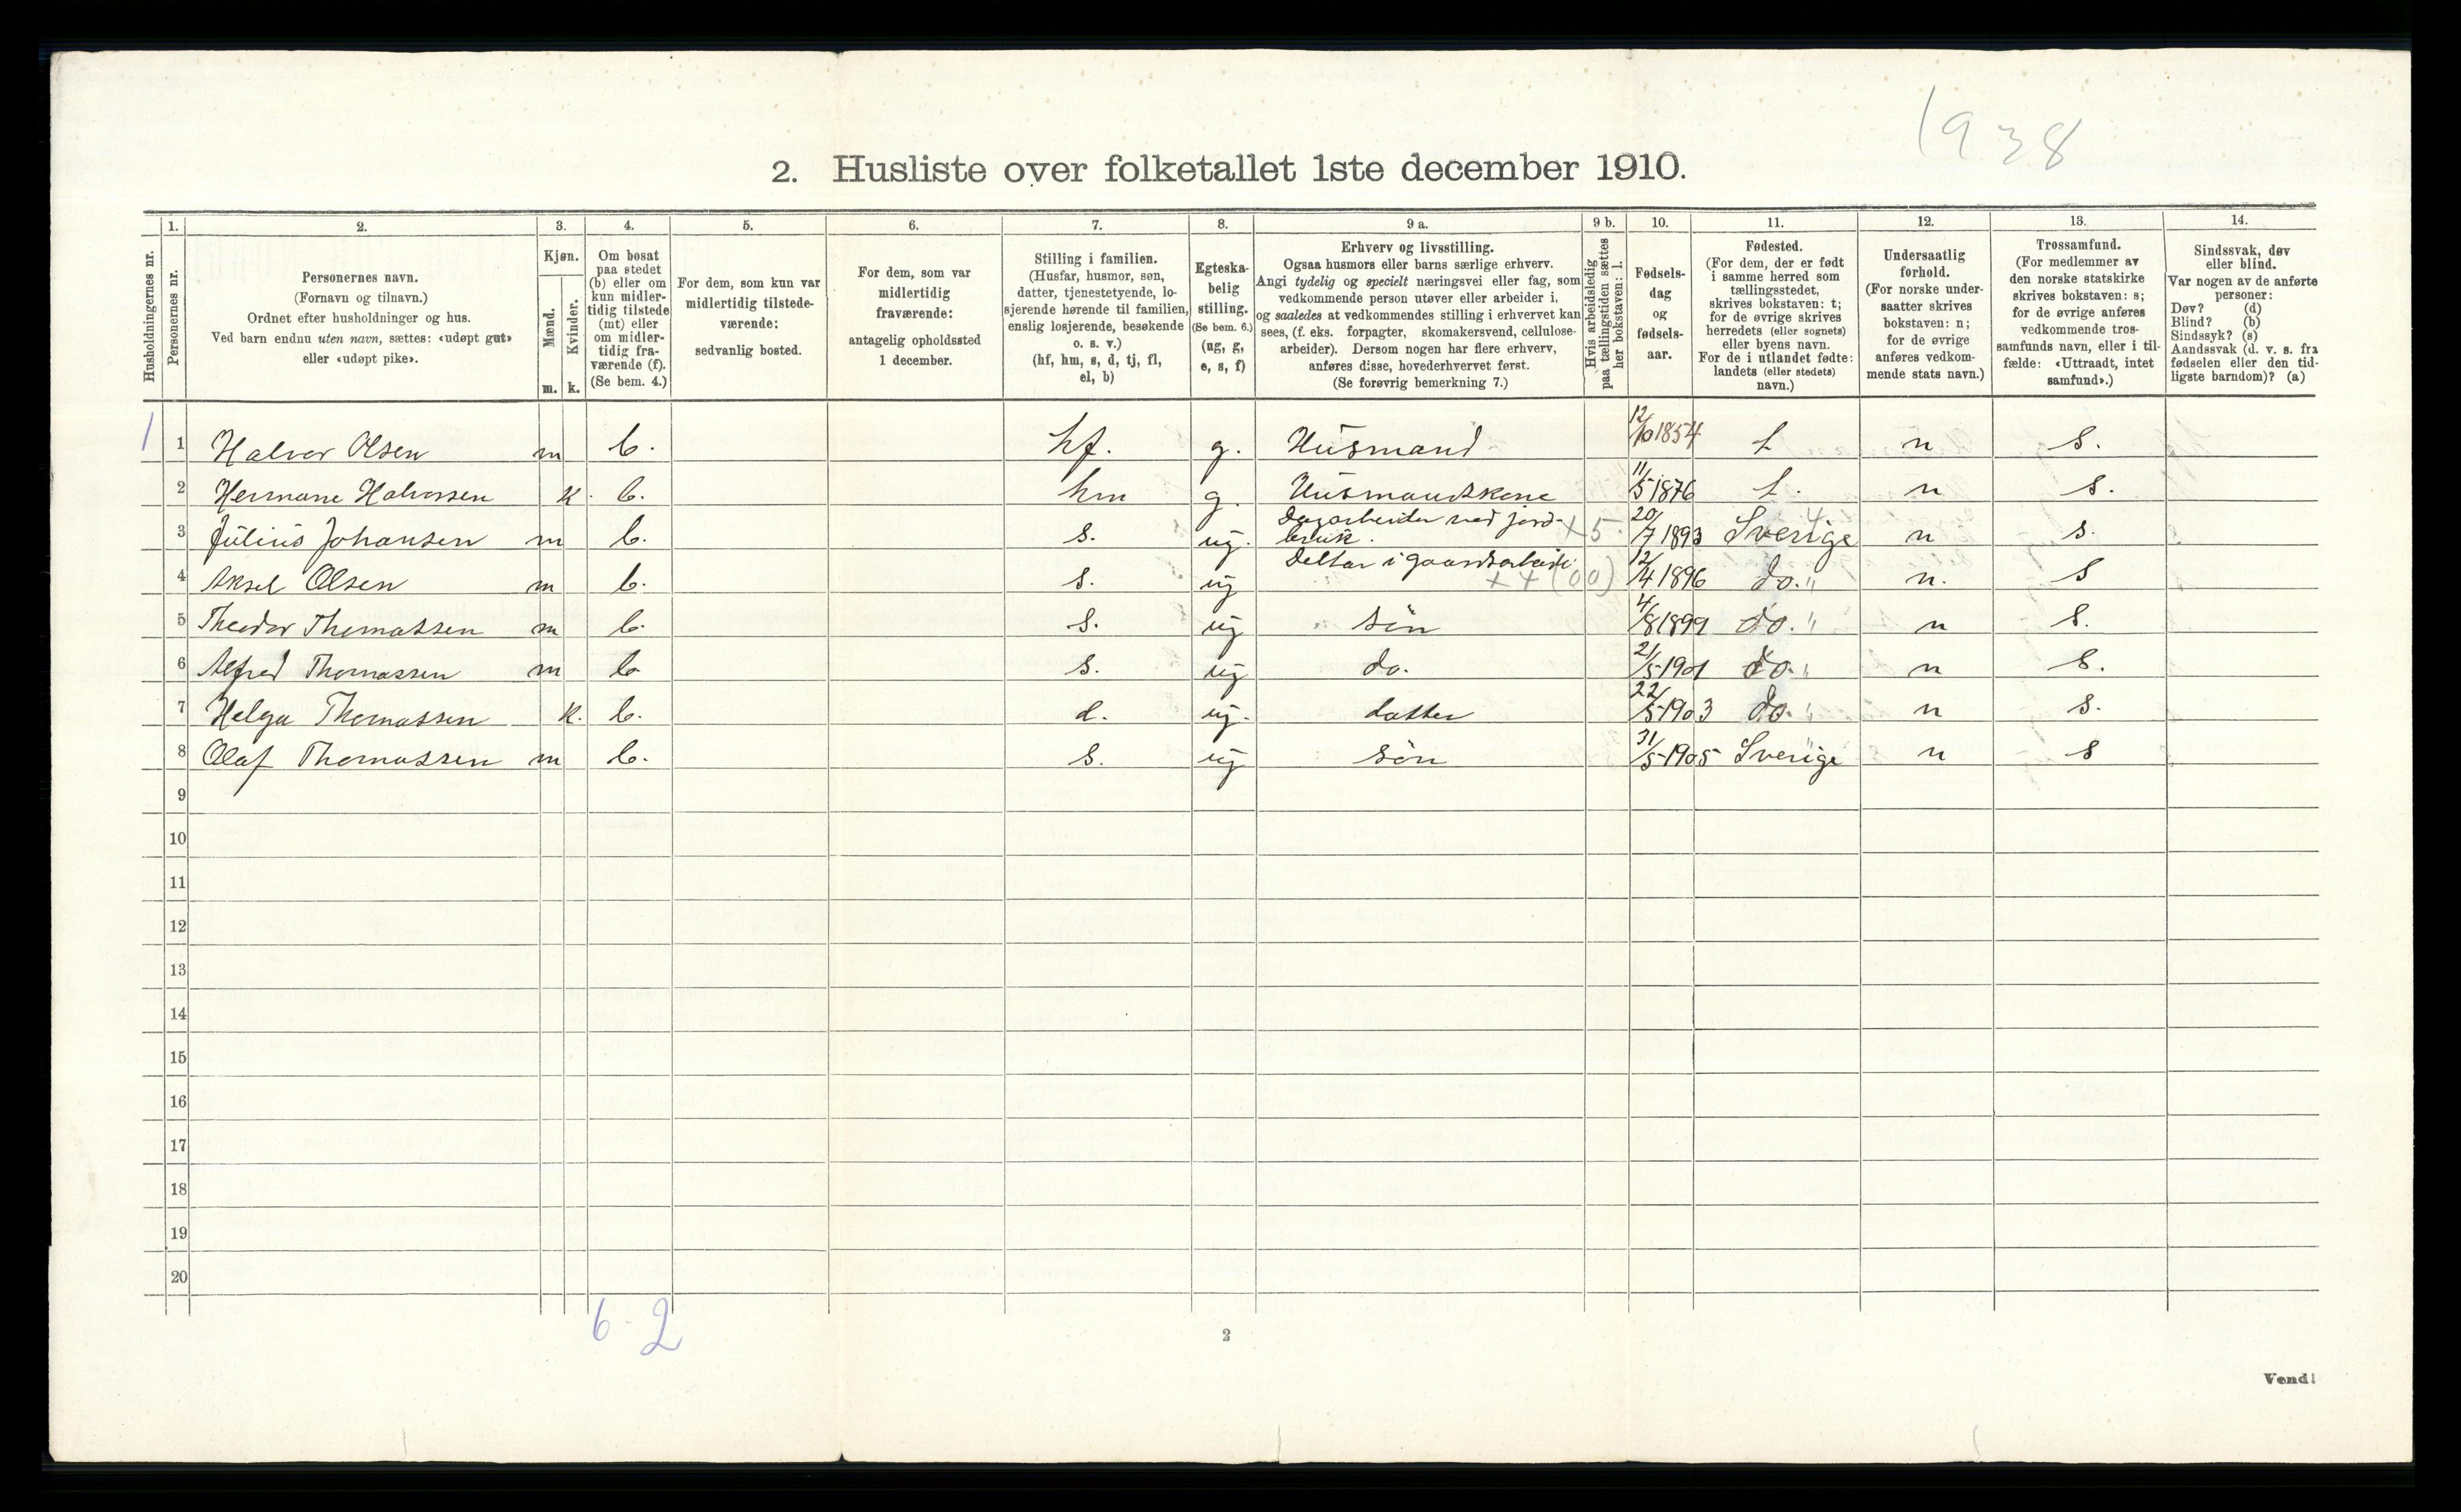 1938
2. Husliste over folketallet 1ste december 1910.
1. 2. 3. 4. 5. 6. 7. 8. 9 a. 9 b. 10. 11. 12. 13. 14.
Husholdningernes nr.
Personernes nr.
Personernes navn.
(Fornavn og tilnavn.)
Ordnet efter husholdninger og hus.
Ved barn endnu uten navn, sættes: «udøpt gut»
eller «udøpt pike».
Kjøn.
Mænd.
Kvinder.
m. k.
Om bosat
paa stedet
(b) eller om
kun midler-
tidig tilstede
(mt) eller
om midler-
tidig fra-
værende (f).
(Se bem. 4.)
For dem, som kun var
midlertidig tilstede-
værende:
sedvanlig bosted.
For dem, som var
midlertidig
fraværende:
antagelig opholdssted
1 december.
Stilling i familien.
(Husfar, husmor, søn,
datter, tjenestetyende, lo-
sjerende hørende til familien,
enslig losjerende, besøkende
o. s. v.)
(hf, hm, s, d, tj, fl,
el, b)
Egteska-
belig
stilling.
(Se bem. 6.)
(ug, g,
e, s, f)
Erhverv og livsstilling.
Ogsaa husmors eller barns særlige erhverv.
Angi tydelig og specielt næringsvei eller fag, som
vedkommende person utøver eller arbeider i,
og saaledes at vedkommendes stilling i erhvervet kan
sees, (f. eks. forpagter, skomakersvend, cellulose-
arbeider). Dersom nogen har flere erhverv,
anføres disse, hovederhvervet først.
(Se forøvrig bemerkning 7.)
Hvis arbeidsledig
paa tællingstiden sættes
her bokstaven: l.
Fødsels-
dag
og
fødsels-
aar.
Fødested.
(For dem, der er født
i samme herred som
tællingsstedet,
skrives bokstaven: t;
for de øvrige skrives
herredets (eller sognets)
eller byens navn.
For de i utlandet fødte:
landets (eller stedets)
navn.)
Undersaatlig
forhold.
(For norske under-
saatter skrives
bokstaven: n;
for de øvrige
anføres vedkom-
mende stats navn.)
Trossamfund.
(For medlemmer av
den norske statskirke
skrives bokstaven: s;
for de øvrige anføres
vedkommende tros-
samfunds navn, eller i til-
fælde: «Uttraadt, intet
samfund».)
Sindssvak, døv
eller blind.
Var nogen av de anførte
personer:
Døv? (d)
Blind? (b)
Sindssyk? (s)
Aandssvak (d. v. s. fra
fødselen eller den tid-
ligste barndom)? (a)
1 1 Halvor Olsen m b. hf. g. Husmand 12/10 1854 t n s.
2 Hermane Halvorsen k. b. hm g. Husmandskone 11/5 1876 t. n s.
3 Julius Johansen m b. s. ug. Dagarbeider ved jord-
bruk. +5 20/7 1893 Sverige n s.
4 Aksel Olsen m b. s. ug Deltar i gaardsarbeide
++ (00) 12/4 1896 do. " n. s
5 Theodor Thomassen m b. s. ug søn 4/8 1899 do. " n s.
6 Alfred Thomassen m b s. ug do. 21/5 1901 do. " n s.
7 Helga Thomassen k. b. d. ug. datter 22/5 1903 do. " n s.
8 Olaf Thomassen m b. s. ug søn 31/5 1905 Sverige n s
9
10
11
12
13
14
15
16
17
18
19
20
6 - 2
2
Vend!